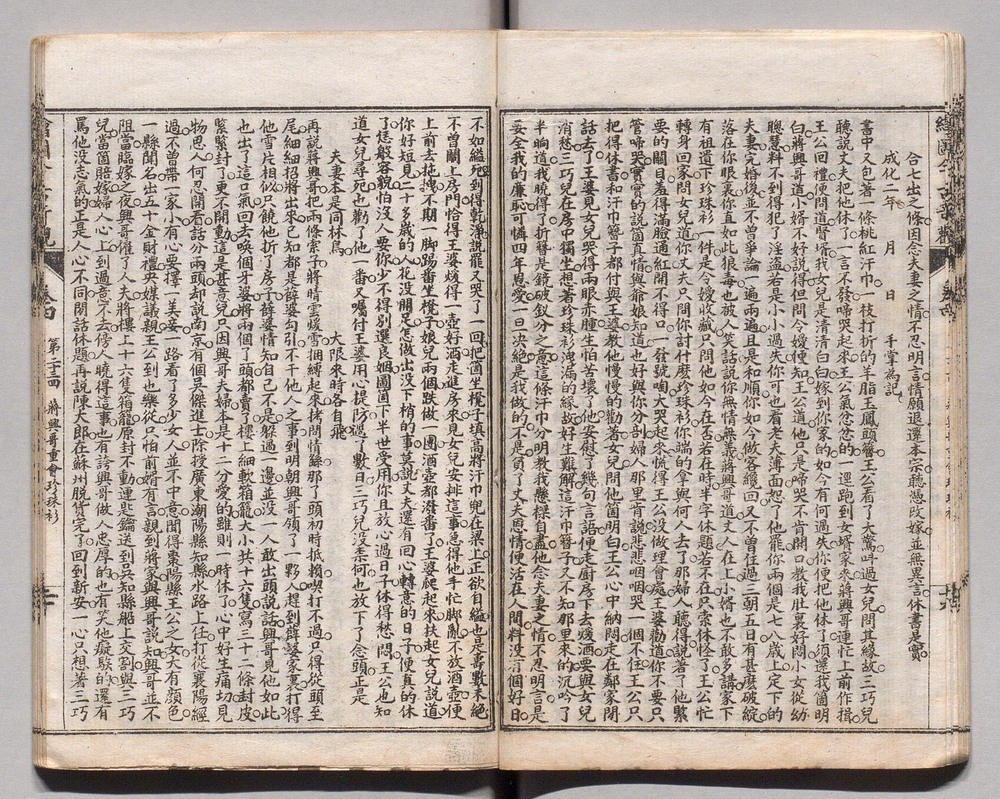 合七出之條因念夫妻之情不忍明言情願退還本宗聽憑改嫁並無異言休書是實
成化二年 月 日 手掌為記
書中又包著一條桃紅汗巾一枝打折的羊脂玉鳳頭簪王公看了大驚叫過女兒問其緣故三巧兒
聽說丈夫把他休了一言不發啼哭起來王公氣忿忿的一逕跑到女壻家來蔣興哥連忙上前作揖
王公回禮便問道賢壻我女兒是清清白白嫁到你家的如今有何過失你便把他休了須還我箇明
白蔣興哥道小婿不好說得但問令嬡便知王公道他只是啼哭不肯開口教我肚裏好悶小女從幼
聰慧料不到得犯了淫盜若是小小過失你可也看老夫薄面恕了他罷你兩個是七八歲上定下的
夫妻完婚後並不曾爭論一遍兩遍且是和順你如今做客纔回又不曾住過三朝五日有甚麼破綻
落在你眼裏你直如此狠毒也被人笑話說你無情無義蔣興哥道丈人在上小婿也不敢多講家下
有祖遺下珍珠衫一件是令嬡收藏只問他如今在否若在時半字休題若不在只索休怪了王公忙
轉身回家問女兒道你丈夫只問你討什麼珍珠衫你端的拿與何人去了那婦人聽得說著了他緊
要的關目羞得滿臉通紅開不得口一發號啕大哭起來慌得王公沒做理會處王婆勸道你不要只
管啼哭實實的說箇真情與爺娘知道也好與你分剖婦人那里肯說悲悲咽咽哭一個不住王公只
得把休書和汗巾簪子都付與王婆教他慢慢的勸著女兒問他箇明白王公心中納悶走在鄰家閒
話去了王婆見女兒哭得兩眼赤腫生怕苦壞了他安慰了幾句言語便走廚房下去煖酒要與女兒
消愁三巧兒在房中獨坐想著珍珠衫洩漏的緣故好生難解這汗巾簪子又不知那里來的沉吟了
半晌道我曉得了折簪是鏡破釵分之意這條汗巾分明教我懸樑自盡他念夫妻之情不忍明言是
要全我的廉恥可憐四年恩愛一旦决絕是我做的不是負了丈夫恩情便活在人間料沒有個好日
不如縊死到得乾淨說罷又哭了一回把箇坐櫈子填高將汗巾兜在梁上正欲自縊也是壽數未絕
不曾關上房門恰得王婆煖得一壺好酒走進房來見女兒安排這事急得他手忙腳亂不放酒壺便
上前去拖拽不期一脚踢番坐櫈子娘兒兩個跌做一團酒壺都潑番了王婆爬起來扶起女兒說道
你好短見二十多歲的人一花沒開足怎做出沒下梢的事莫說丈夫還有回心轉意的日子便真的休
了恁般容貌怕沒人要你少不得別選良姻圖箇下半世受用你且放心過日子休得愁悶王公也知
道女兒尋死也勸了他一番又囑付王婆用心提防過了數日三巧兒沒柰何也放下了念頭正是
夫妻本是同林鳥 大限來時各自飛
再說蔣興哥把兩條索子將晴雲煖雪捆縛起來拷問情繇那丫頭初時抵賴喫打不過只得從頭至
尾細細招將出來已知都是薛婆勾引不干他人之事到明朝興哥領了一夥人趕到薛婆家裏打得
他雪片相似只饒他拆了房子薛婆情知自己不是躱過一邊並沒一人敢出頭說話興哥見他如此
也出了這口氣回去喚個牙婆將兩個丫頭都賣了樓上細軟箱籠大小共十六隻寫三十二條封皮
緊緊封了更不開動這是甚意兒只因興哥夫婦本是十二分愛的雖則一時休了心中好生痛切見
物思人何忍開看話分兩頭却說南京有個吳傑進士除授廣東潮陽縣知縣水路上任打從襄陽經
過不曾帶家小有心要擇一美妾一路看了多少女人並不中意聞得棗陽縣王公之女大有顏色
一縣聞名出五十金財禮央媒議親王公到也樂從只怕前婿有言親到蔣家與興哥說知興哥並不
阻當臨嫁之夜興哥雇了人夫將樓上十六隻箱籠原封不動連匙鑰送到吳知縣船上交割與三巧
兒當箇賠嫁婦人心上到過意不去傍人曉得這事也有誇興哥做人忠厚的也有笑他癡騃的還有
罵他沒志氣的正是人心不同閒話休題再說陳大郎在蘇州脱貨完了回到新安一心只想著三巧
卷四 第二十三回 蔣興哥重會珍珠衫